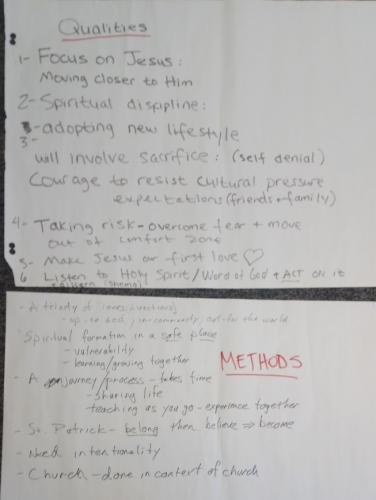 Qualities
1- Focus on Jesus:
Moving closer to Him
2- Spiritual discipline:
3- adopting new lifestyle
will involve sacrifice: (self denial)
Courage to resist cultural pressure
expectations (friends + family)
4- Taking risk - overcome fear + move
out of comfort zone
5- Make Jesus our first love ♡
6 Listen to Holy Spirit/Word of God + ACT on it
(shema)
- A triad of
- up-to God, in-community, out-for the world
Spiritual formation in a safe place
- vulnerability
- learning/growing together
METHODS
- A journey/process - takes time
- sharing life
- teaching as you go - experience together
- St. Patrick - belong then believe ⇒ become
- Need intentionality
- Church - done in context of church